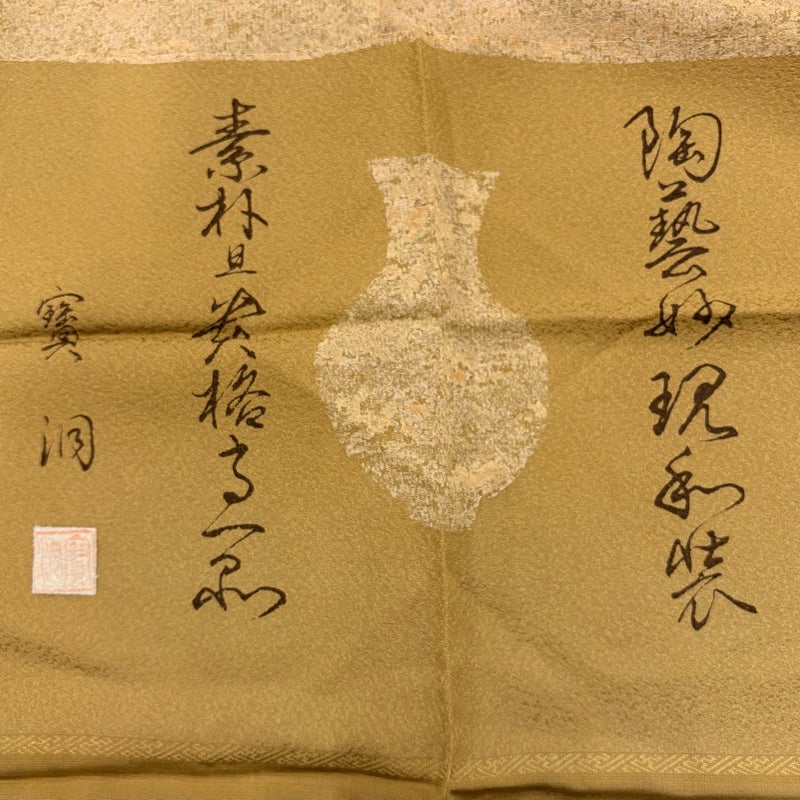 陶藝妙現和装
素朴且美格高一品
寶洞